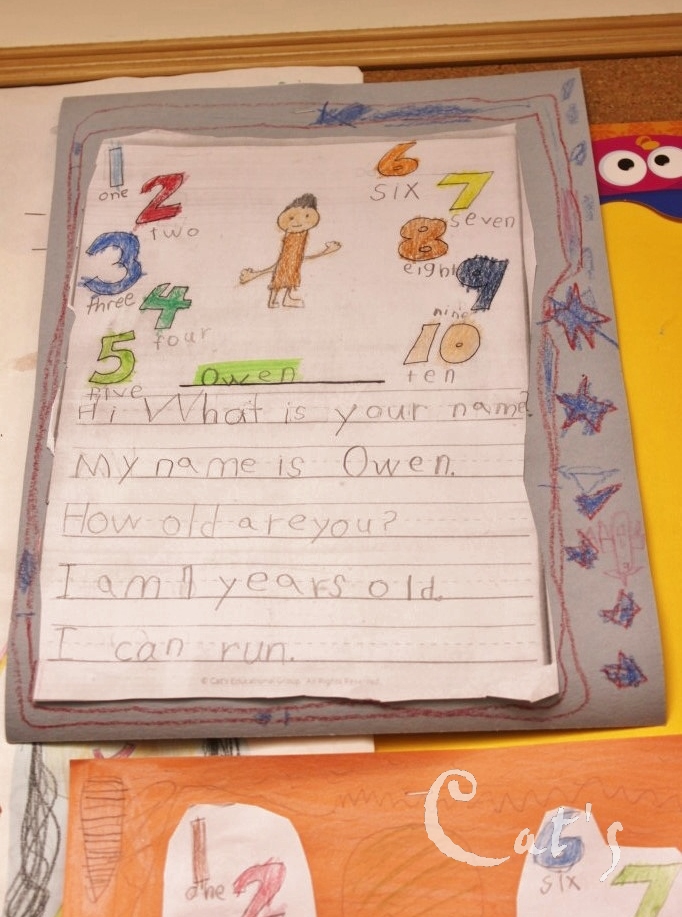 1
one
2
two
3
three
4
four
5
five
6
six
7
seven
8
eight
9
nine
10
ten
Owen
Hi What is your name?
My name is Owen.
How old are you?
I am years old.
I can run.
© Cat's Educational Group. All Rights Reserved.
1
one
2
6
six
7
Cat's